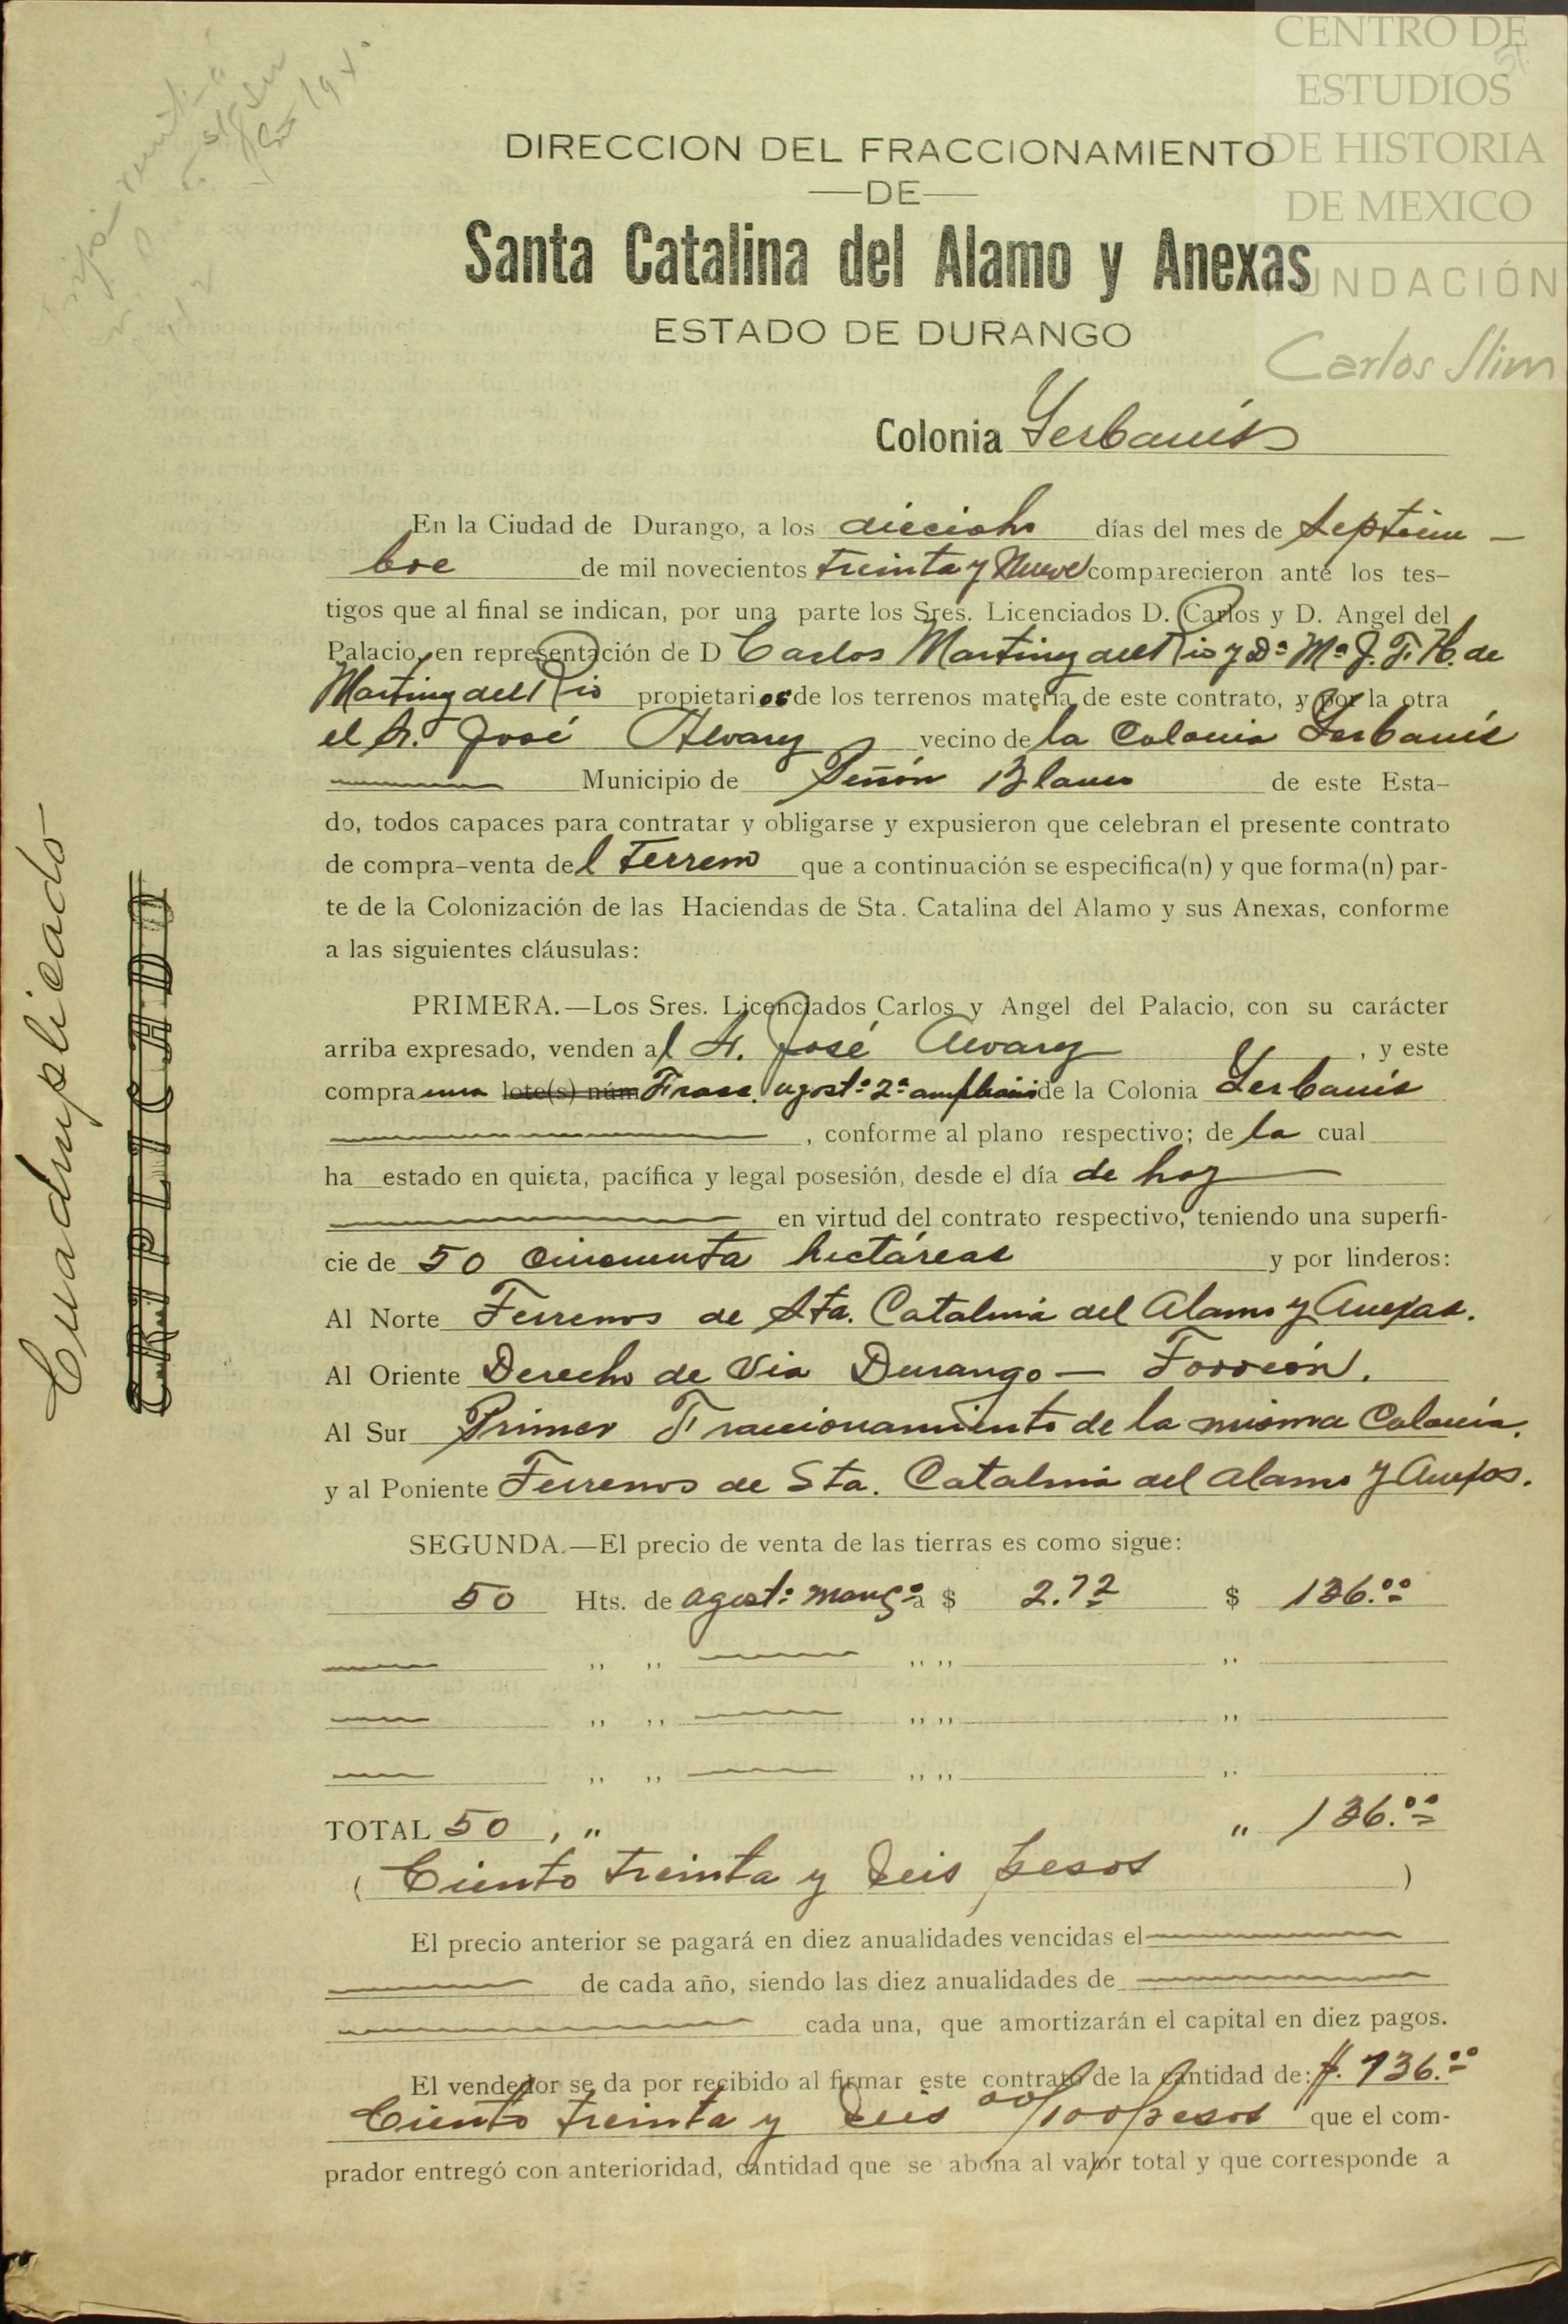 CENTRO DE
ESTUDIOS
DE HISTORIA
DE MEXICO
FUNDACIÓN
Carlos Slim
DIRECCION DEL FRACCIONAMIENTO
—DE—
Santa Catalina del Alamo y Anexas
ESTADO DE DURANGO
Colonia Yerbanís
En la Ciudad de Durango, a los dieciocho días del mes de Septiem-
bre de mil novecientos treinta y Nueve comparecieron ante los tes-
tigos que al final se indican, por una parte los Sres. Licenciados D. Carlos y D. Angel del
Palacio, en representación de D Carlos Martinez del Rio y Da. Ma. J. T. H. de
Martinez del Rio propietarios de los terrenos materia de este contrato, y por la otra
el Sr. José Alvarez vecino de la Colonia Yerbanís
Municipio de Peñón Blanco de este Esta-
do, todos capaces para contratar y obligarse y expusieron que celebran el presente contrato
de compra-venta del terreno que a continuación se especifica(n) y que forma(n) par-
te de la Colonización de las Haciendas de Sta. Catalina del Alamo y sus Anexas, conforme
a las siguientes cláusulas:
PRIMERA.—Los Sres. Licenciados Carlos y Angel del Palacio, con su carácter
arriba expresado, venden al Sr. José Alvarez , y este
compra una lote(s) núm Fracc. agosto. 2a ampliación de la Colonia Yerbanís
, conforme al plano respectivo; de la cual
ha estado en quieta, pacífica y legal posesión, desde el día de hoy
en virtud del contrato respectivo, teniendo una superfi-
cie de 50 cincuenta hectáreas y por linderos:
Al Norte Terrenos de Sta. Catalina del Alamo y Anexas.
Al Oriente Derecho de Via Durango — Torreón.
Al Sur Primer Fraccionamiento de la misma Colonia.
y al Poniente Terrenos de Sta. Catalina del Alamo y Anexas.
SEGUNDA.—El precio de venta de las tierras es como sigue:
50 Hts. de agosto. a $ 2.72 $ 136.00
,, ,, ,, ,, ,,
,, ,, ,, ,, ,,
,, ,, ,, ,, ,,
TOTAL 50 , „ „ 136.00
( Ciento treinta y seis pesos )
El precio anterior se pagará en diez anualidades vencidas el
de cada año, siendo las diez anualidades de
cada una, que amortizarán el capital en diez pagos.
El vendedor se da por recibido al firmar este contrato de la cantidad de: $. 136.00
Ciento treinta y seis 00/100 pesos que el com-
prador entregó con anterioridad, cantidad que se abona al valor total y que corresponde a
Cuadruplicado
TRIPLICADO